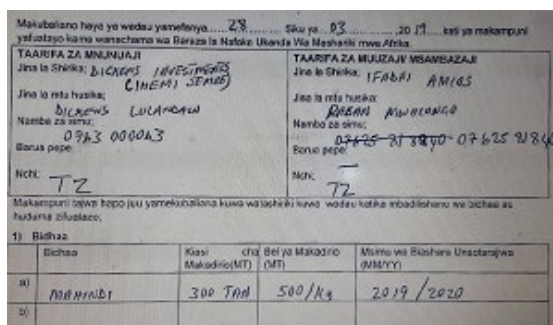 Makubaliano haya ya wadau yamefanya 28 Siku ya 03 ,2019 kati ya makampuni
yafuatayo kama wanachama wa Baraza la Nafaka Ukanda Wa Mashariki mwa Afrika.
TAARIFA ZA MNUNUAJI
Jina la Shirika; DICKENS INVESTMENTS
(IHEMI SEMBE)
Jina la mtu husika;
DICKENS
Namba za simu;
Barua pepe:
Nchi: TZ
TAARIFA ZA MUUZAJI/ MSAMBAZAJI
Jina la Shirika; IFADAI AMCOS
Jina la mtu husika;
MWALONGO
Namba za simu;
Barua pepe:
Nchi: TZ
Makampuni tajwa hapo juu yamekubaliana kuwa watashiriki kuwa wadau katika mbadilishano wa bidhaa au
huduma zifuatazo;
1) Bidhaa
Bidhaa
Kiasi cha Makadirio(MT)
Bei ya Makadirio (MT)
Msimu wa Biashara Unaotarajiwa (MM/YY)
a) MAHINDI 300 TAN 500/Kg 2019/2020
b)